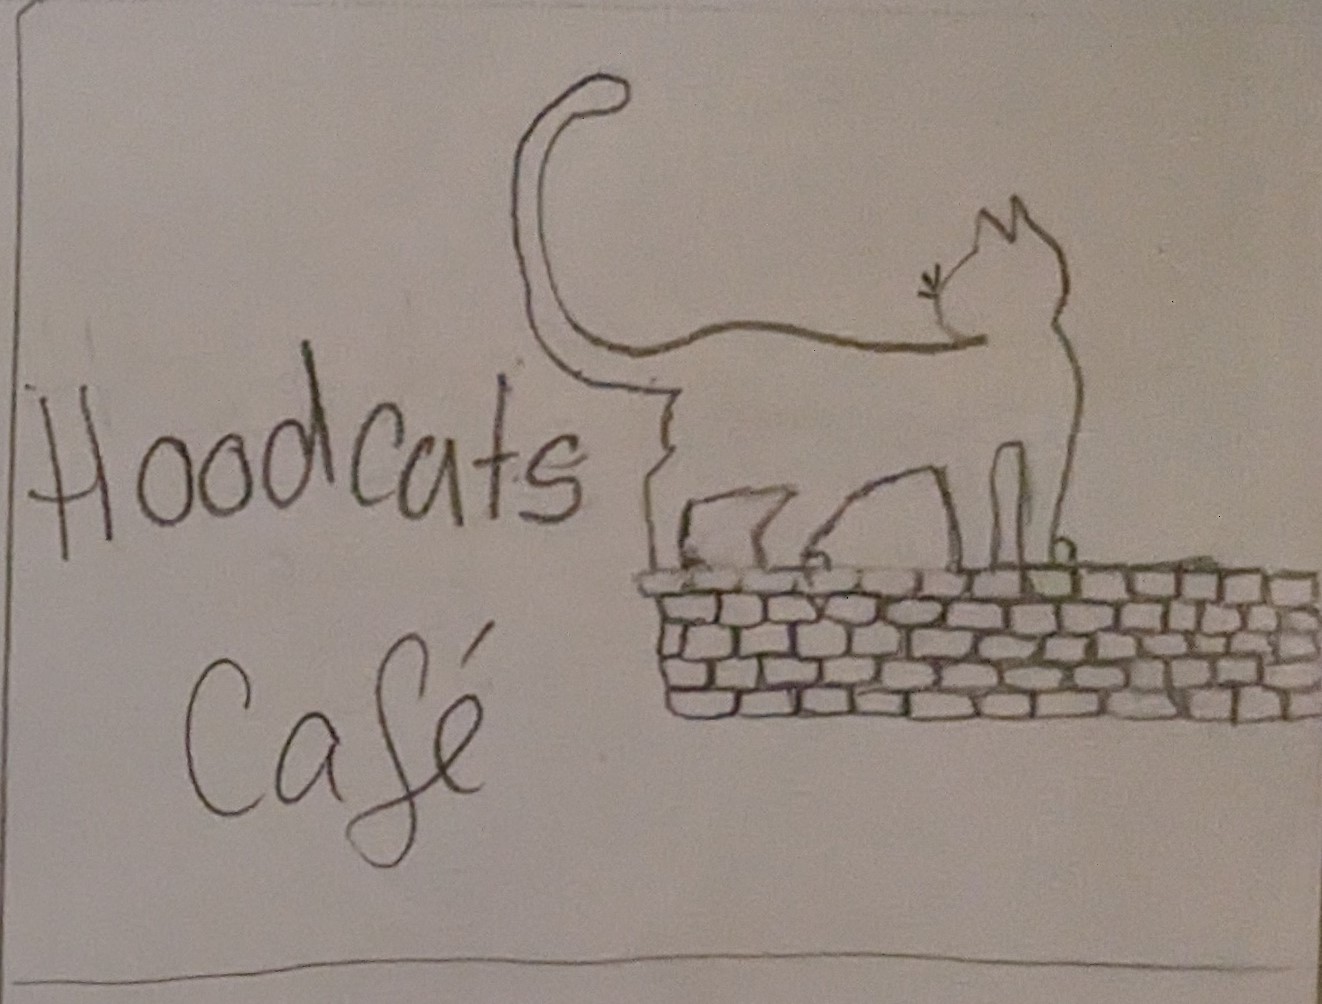 Hoodcats
Café